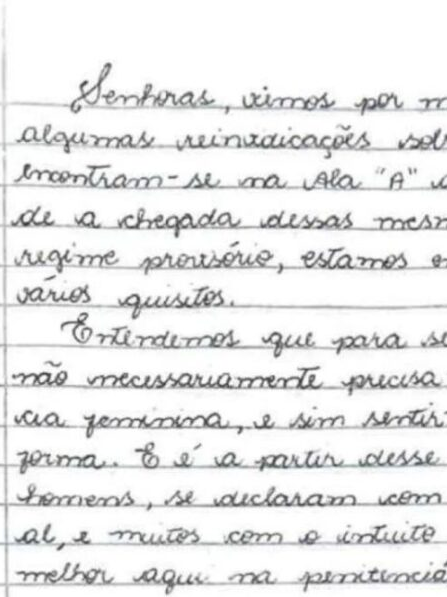 Senhoras, vimos por m
algumas reinvidicações sob
encontram-se na Ala "A" d
de a chegada dessas mesm
regime provisório, estamos e
vários quisitos.
Entendemos que para se
não necessariamente precisa
cia feminina, e sim sentir
forma. E é a partir desse
homens, se declaram com
al, e muitos com o intuito
melhor aqui na penitenciá